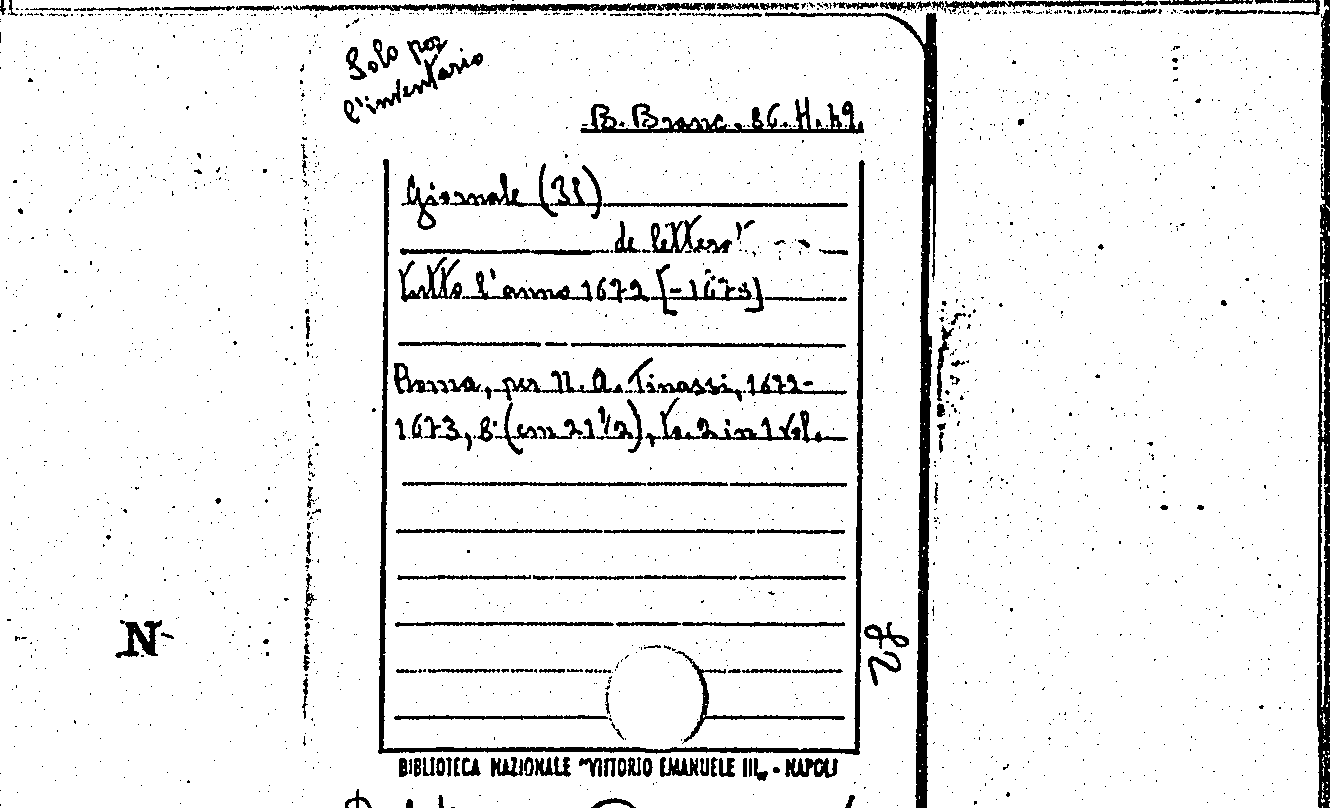 Solo per
l'inventario
B. Branc. 86. H. 49.
Giornale (Il)
de lettera
tutto l'anno 1672 [-1673]
Roma, per N. A. Tinassi, 1672-
1673, 8° (cm 21 1/2), to. 2 in 1 vol.
N
BIBLIOTECA NAZIONALE "VITTORIO EMANUELE III„ - NAPOLI